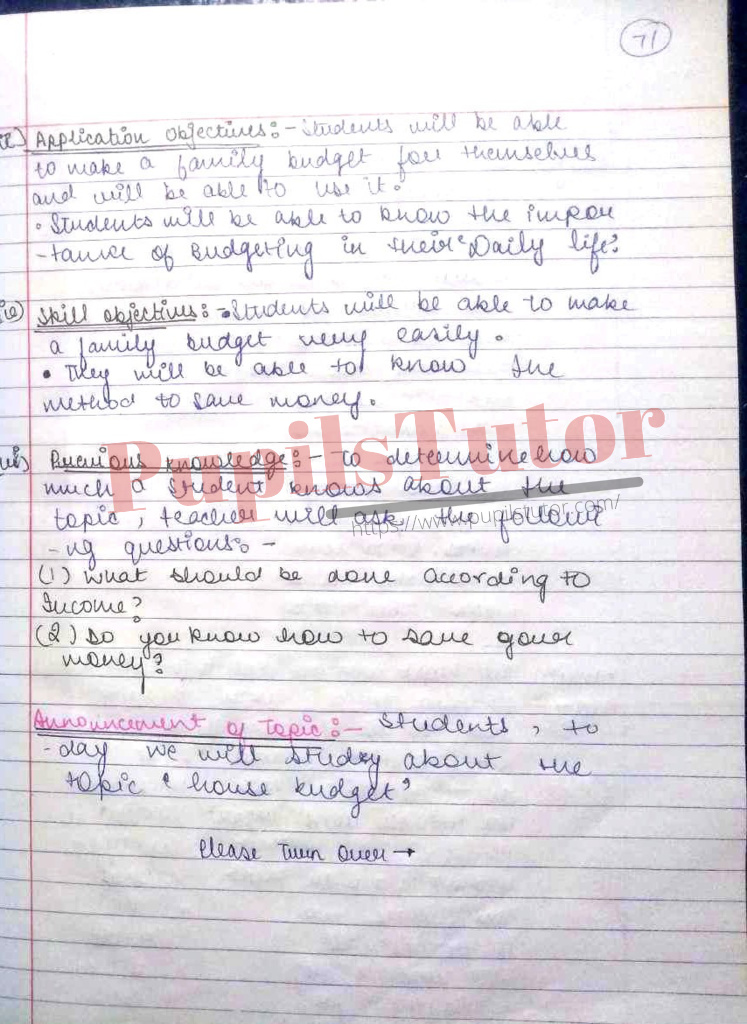 71
Application Objectives:- Students will be able
to make a family budget for themselves
and will be able to use it.
• Students will be able to know the impor
-tance of Budgeting in their 'Daily life.'
Skill objectives:- • Students will be able to make
a family budget very easily.
• They will be able to know the
method to save money.
Previous knowledge:- To determine how
much a student knows about the
topic, teacher will ask the followi
-ng questions:-
(1) What should be done according to
Income?
(2) Do you know how to save your
money?
Announcement of Topic:- Students, to
-day we will study about the
topic 'house budget'
Please Turn Over →
PupilsTutor
https://www.pupilstutor.com/